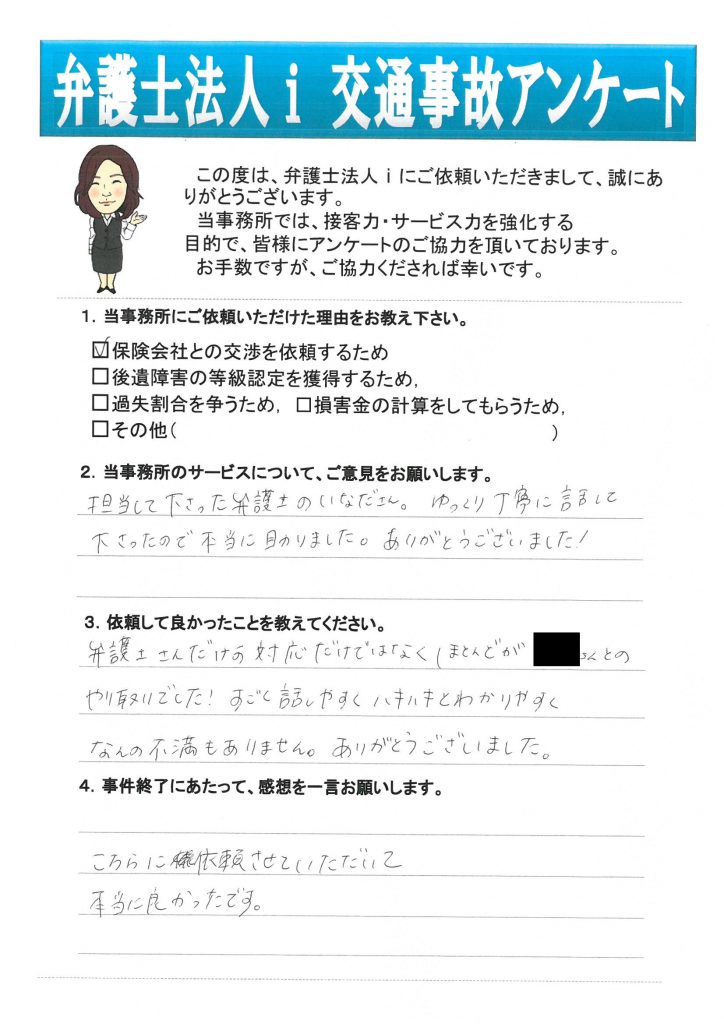 弁護士法人ｉ 交通事故アンケート
この度は、弁護士法人ｉにご依頼いただきまして、誠にあ
りがとうございます。
当事務所では、接客力・サービス力を強化する
目的で、皆様にアンケートのご協力を頂いております。
お手数ですが、ご協力くだされば幸いです。
１．当事務所にご依頼いただけた理由をお教え下さい。
☑保険会社との交渉を依頼するため
□後遺障害の等級認定を獲得するため，
□過失割合を争うため，□損害金の計算をしてもらうため，
□その他（　　　　　　　　　　）
２．当事務所のサービスについて、ご意見をお願いします。
担当して下さった弁護士のいなださん。ゆっくり丁寧に話して
下さったので本当に助かりました。ありがとうございました！
３．依頼して良かったことを教えてください。
弁護士さんだけの対応だけではなく（ほとんどが さんとの
やり取りでした！すごく話しやすくハキハキとわかりやすく
なんの不満もありません。ありがとうございました。
４．事件終了にあたって、感想を一言お願いします。
こちらに依頼させていただいて
本当に良かったです。